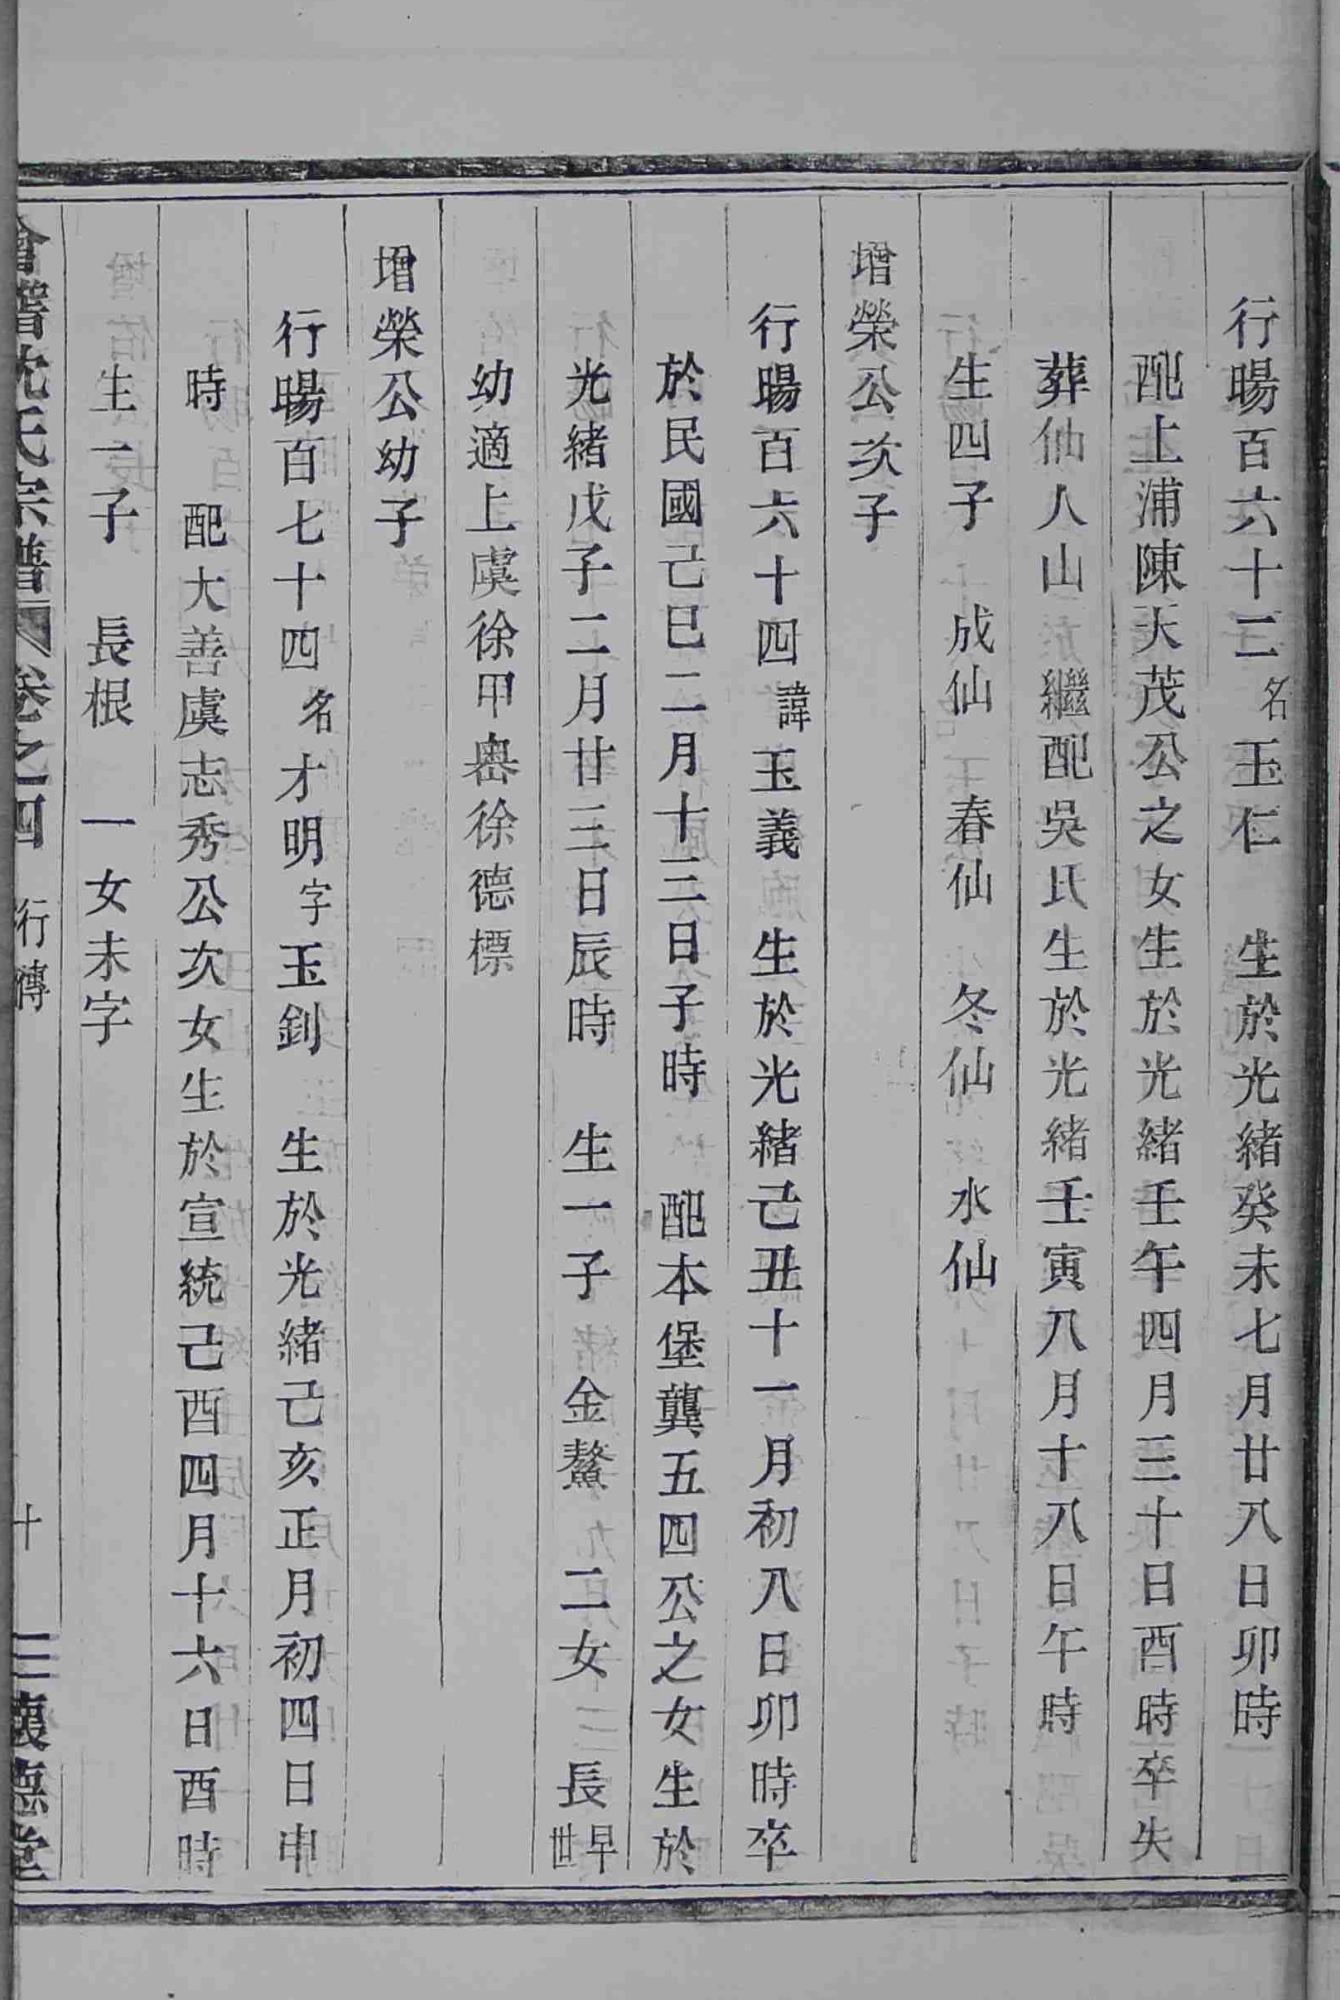 行暘百六十二名玉仁　生於光緒癸未七月廿八日卯時
配上浦陳天茂公之女生於光緒壬午四月三十日酉時卒失
葬仙人山　繼配吳氏生於光緒壬寅八月十八日午時
生四子　成仙　春仙　冬仙　水仙
增榮公次子
行暘百六十四諱玉義　生於光緒己丑十一月初八日卯時卒
於民國己巳二月十二日子時　配本堡龔五四公之女生於
光緒戊子二月廿三日辰時　生一子　金鰲　二女　長早世
幼適上虞徐甲嶴徐德標
增榮公幼子
行暘百七十四名才明字玉釗　生於光緒己亥正月初四日申
時　配大善虞志秀公次女生於宣統己酉四月十六日酉時
生一子　長根　一女未字
會稽沈氏宗譜　卷之四　行傳　十　三懷德堂